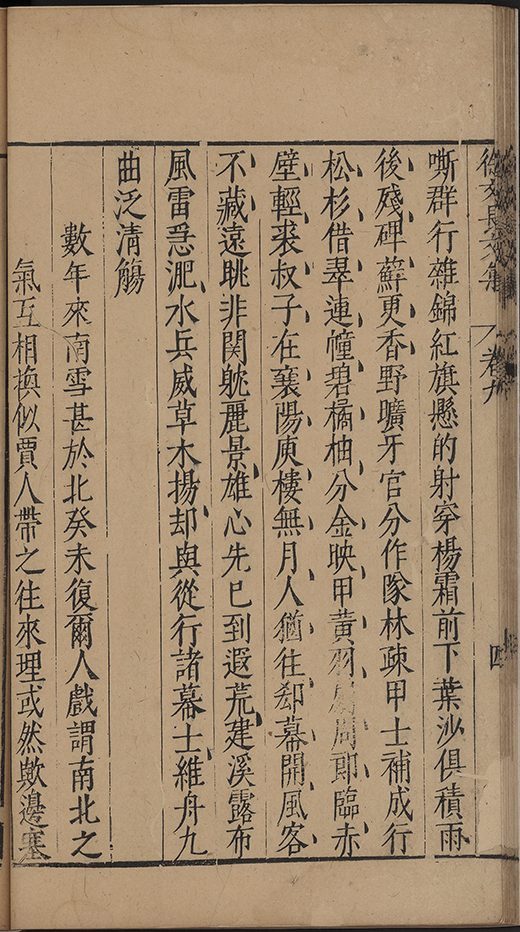 徐文長文集 卷九 四
嘶群行雜錦紅旗懸的射穿楊霜前下葉沙俱積雨
後殘碑蘚更香野曠牙官分作隊林疎甲士補成行
松杉借翠連幢碧橘柚分金映甲黃羽扇周郎臨赤
壁輕裘叔子在襄陽庾樓無月人猶往却幕開風客
不藏遠眺非関躭麗景雄心先已到遐荒建溪露布
風雷急淝水兵威草木揚却與從行諸幕士維舟九
曲泛清觴
數年來南雪甚於北癸未復爾人戲謂南北之
氣互相換似賈人帶之往來理或然歟邊塞